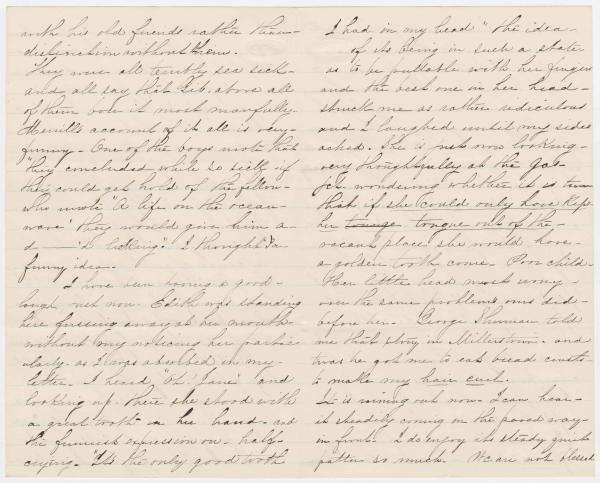 with his old friends rather than
distinction without them.
They were all terribly sea sick-
and all say that Lib. above all
of them bore it most manfully
Merrill's account of it all is very-
funny - One of the boys wrote that
"they concluded, while so sick, if
they could get hold of the fellow-
who wrote 'A life on the ocean-
wave' they would give him a-
d——'d licking". I thought
funny idea.
I have been having a good-
laugh just now. Edith was standing
here fussing away at her mouth
without my noticing her partic-
ularly. as I was absorbed in my-
letter. I heard, "Oh! Jane" and
looking up. There she stood with
a great tooth in her hand - and
the funniest expression on - half-
crying. "It's the only good tooth
I had in my head" The idea-
of its being in such a state
as to be pullable with her fingers
and the best one in her head-
struck me as rather ridiculous
and I laughed until my sides
ached. She is now looking-
very thoughtfully at the
wondering whether it is true
that if she could only have kept
her tounge tongue out of the-
vacant place she would have-
a golden tooth come. Poor child-
Her little head must worry-
over the same problems ours did-
before her. George Shuman told
me that story in Millerstown. and
twas he got me to eat bread crusts-
to make my hair curl.
It is raining out now. I can hear-
it steadily coming on the paved way-
in front. I do enjoy its steady quiet
patter so much. We are not blessed